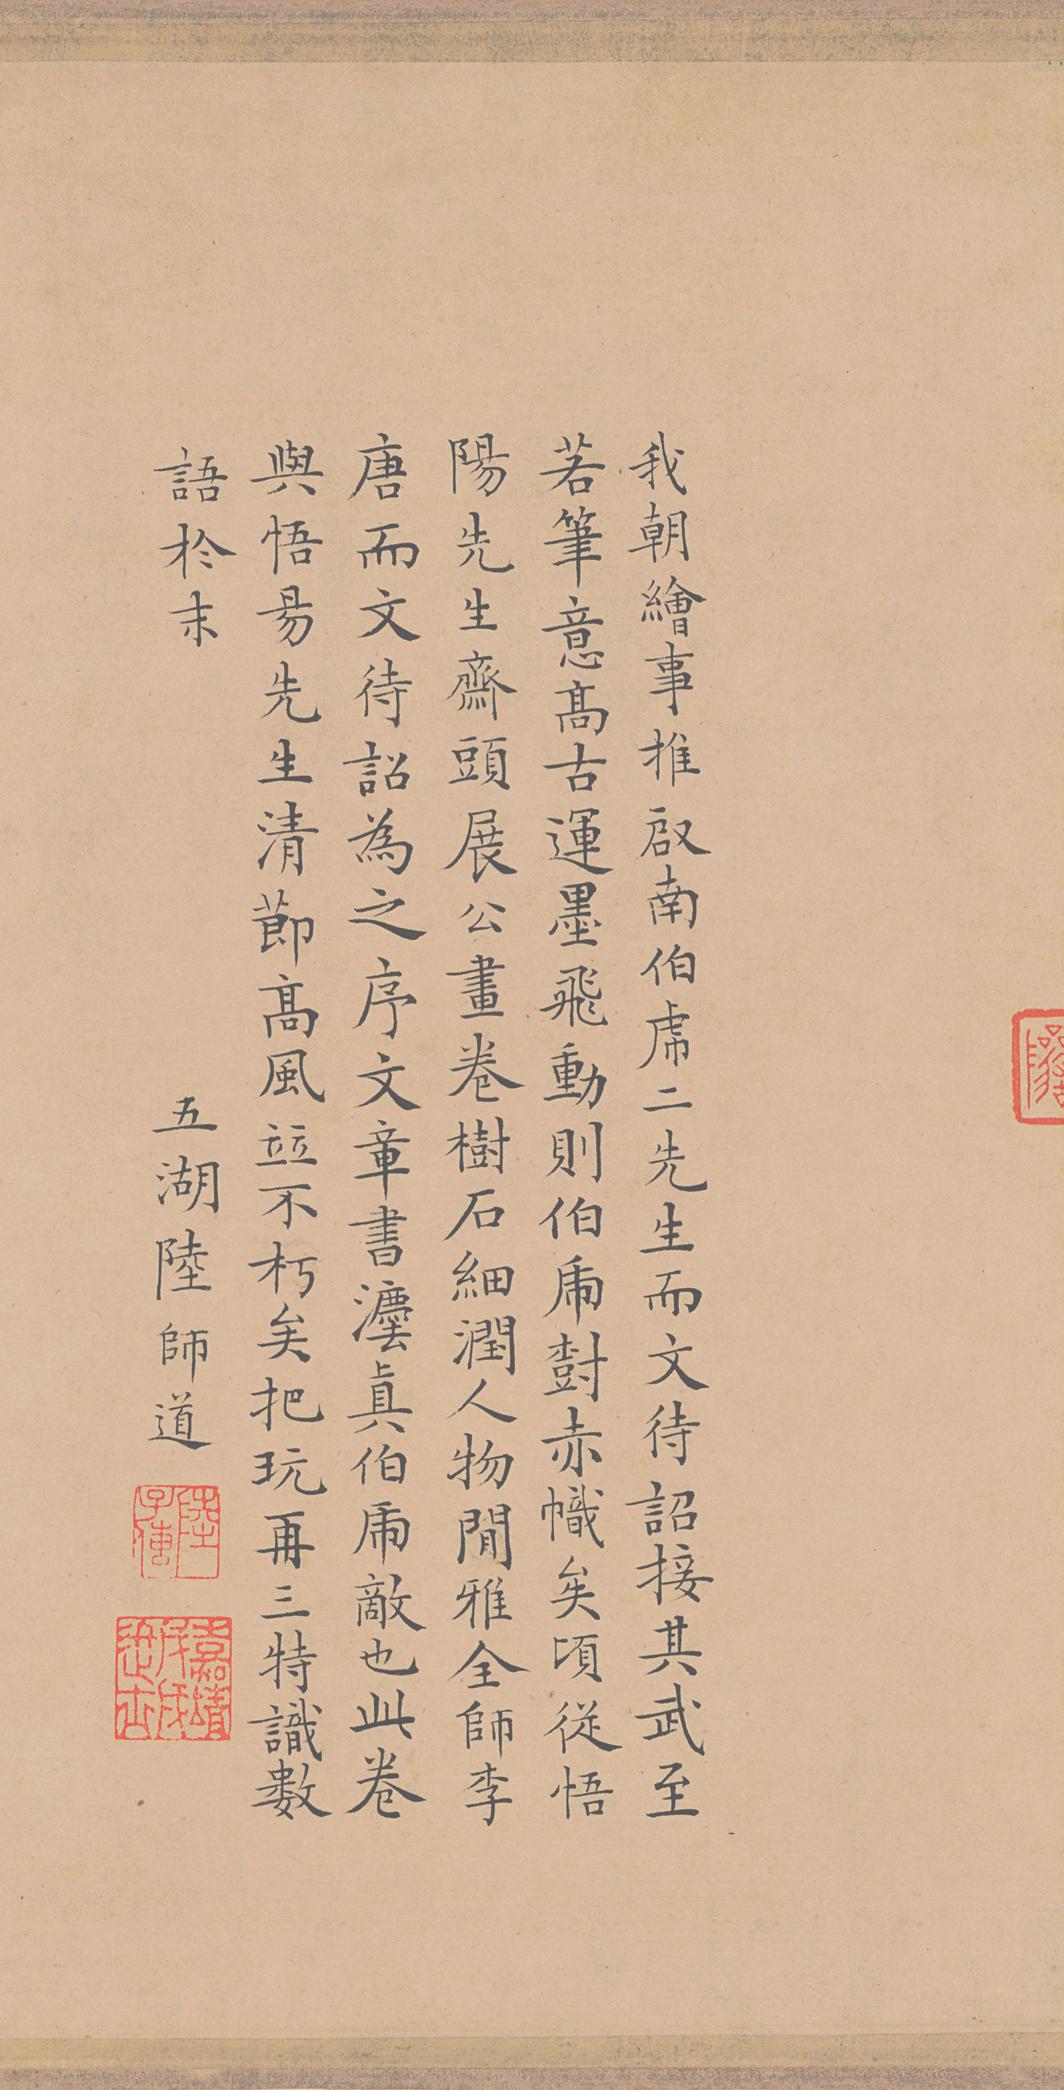 我朝繪事推啟南伯虎二先生而文待詔接其武至
若筆意高古運墨飛動則伯虎樹赤幟矣頃從悟
陽先生齋頭展公畫卷樹石細潤人物閒雅全師李
唐而文待詔為之序文章書灋真伯虎敵也此卷
與悟昜先生清節高風並不朽矣把玩再三特識數
語於末
五湖陸師道
陸子傳